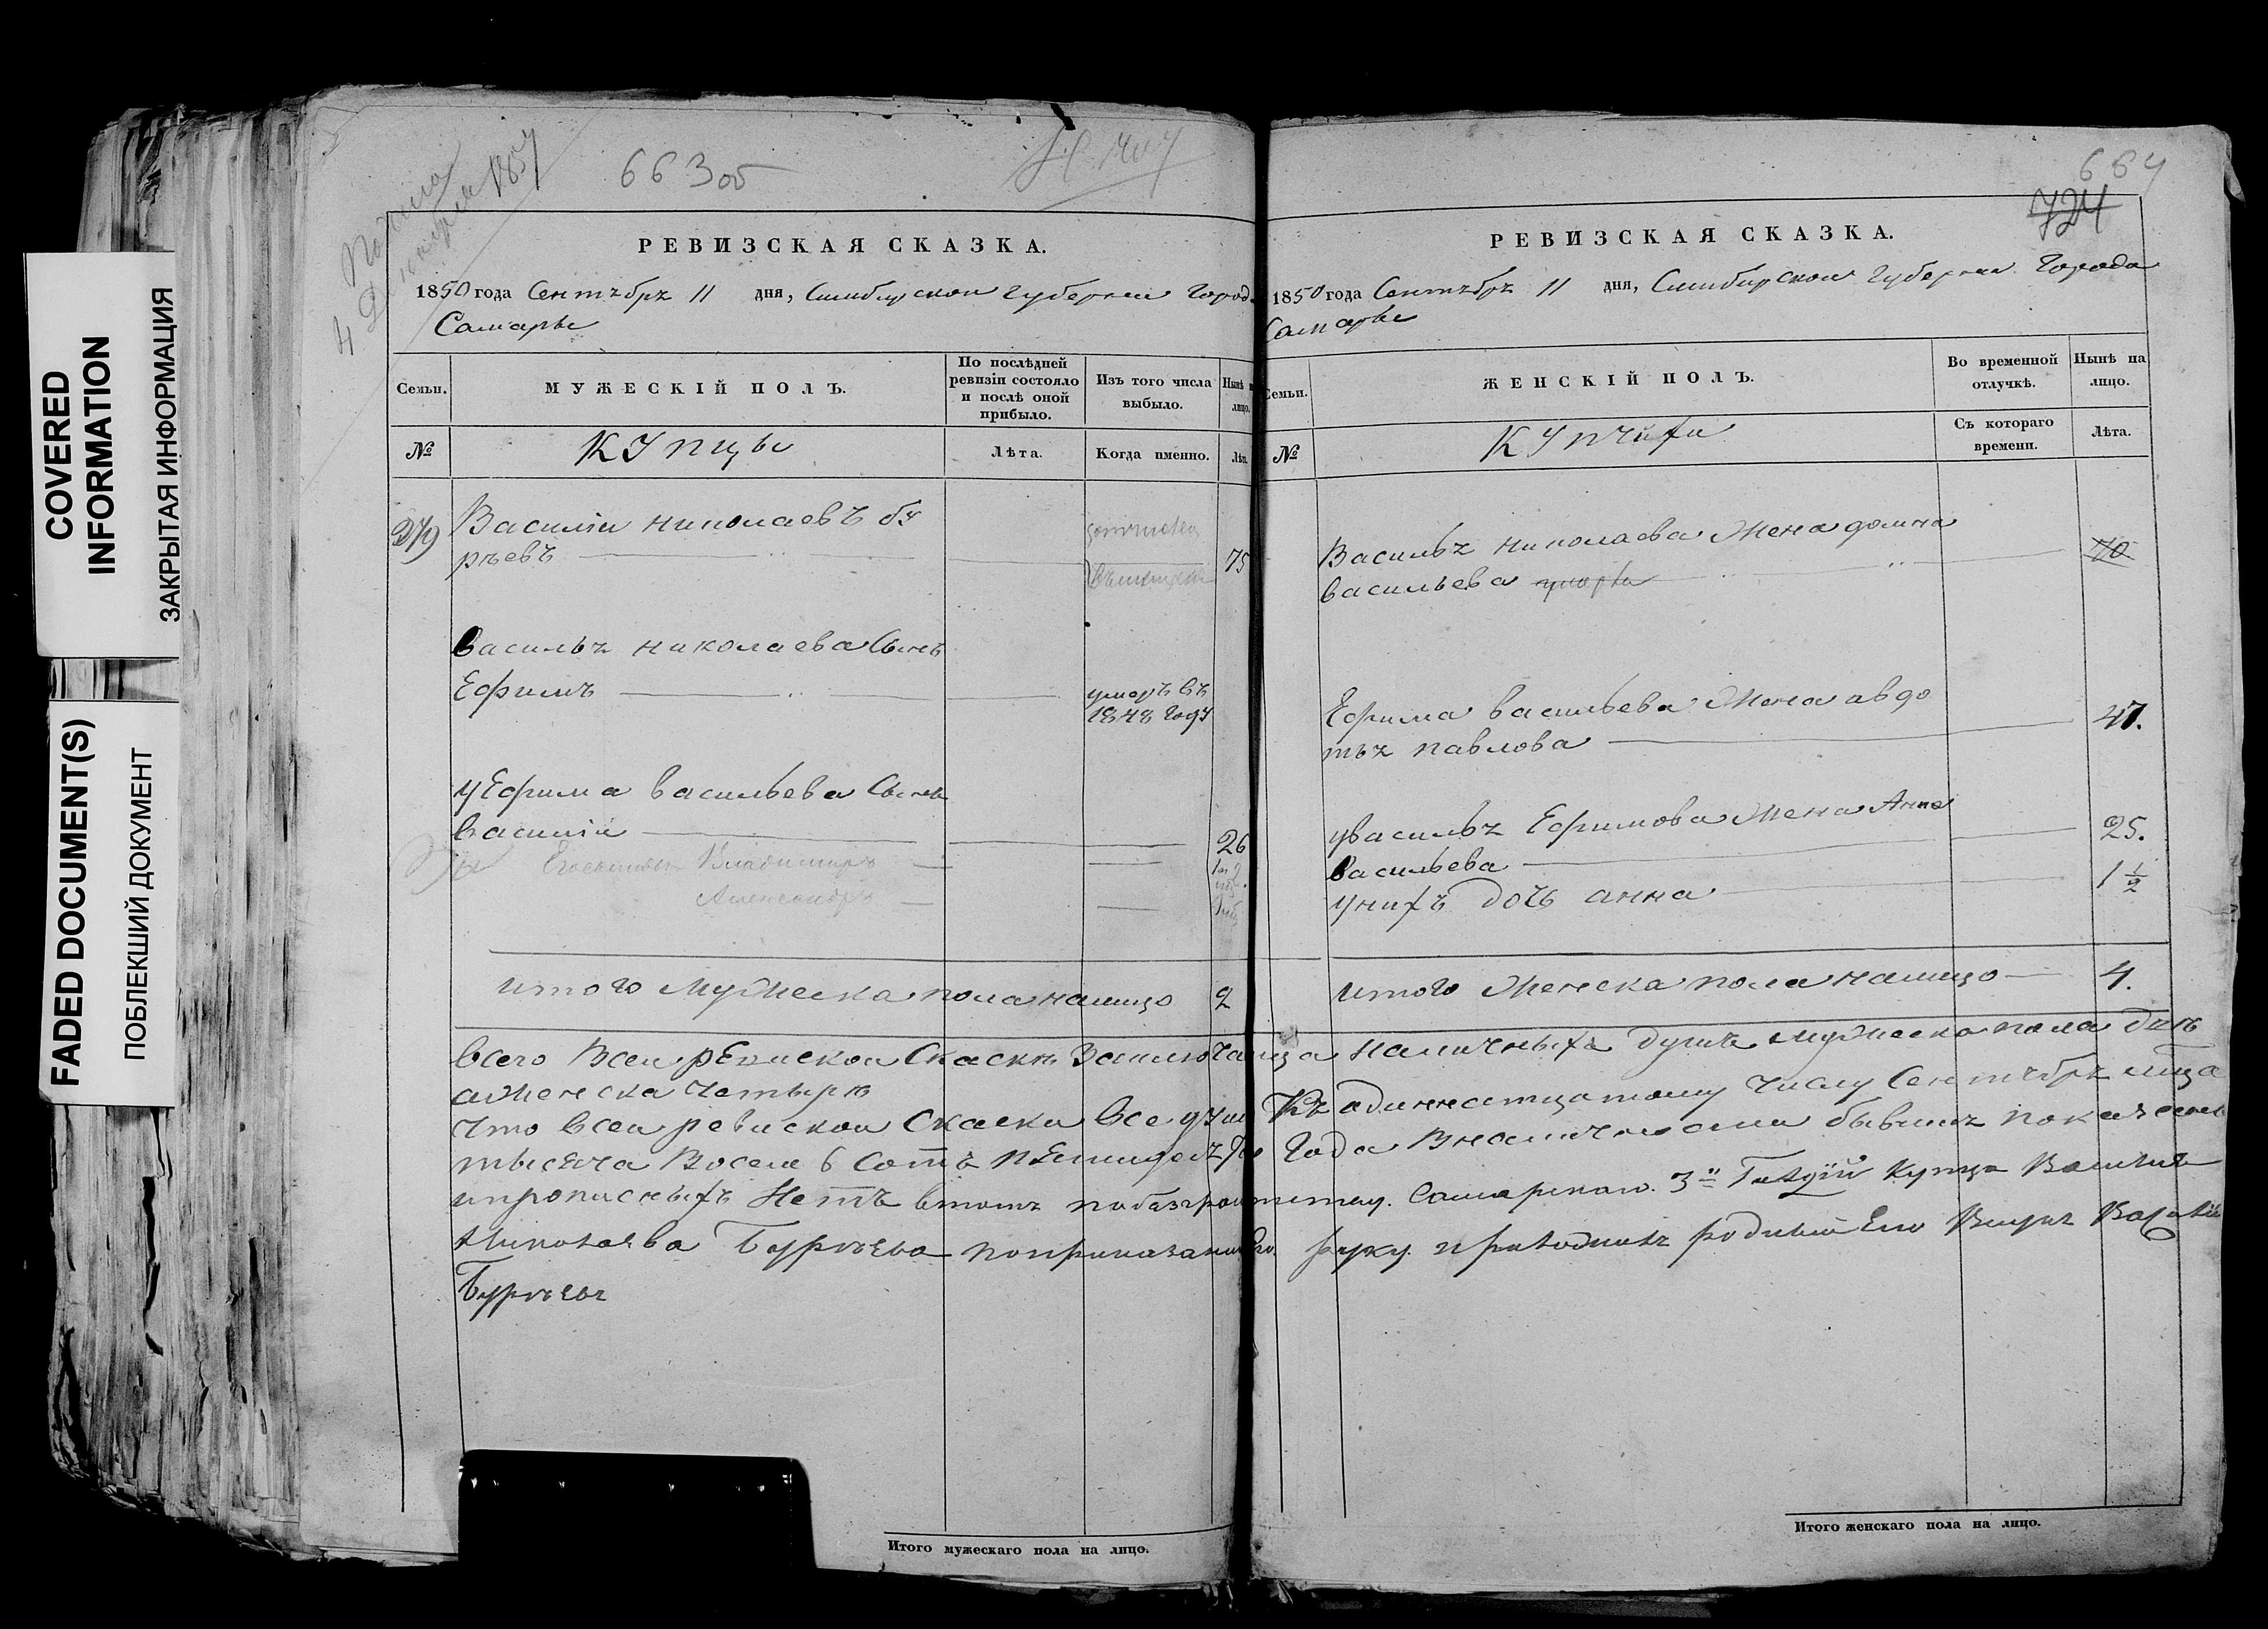 COVERED
INFORMATION
ЗАКРЫТАЯ ИНФОРМАЦИЯ
FADED DOCUMENT(S)
ПОБЛЕКШИЙ ДОКУМЕНТ
1857
663 об
РЕВИЗСКАЯ СКАЗКА.
1850 года Сентебре 11 дня, Симбирскои Губернии Город
Самары
Семьи.
МУЖЕСКІЙ ПОЛЪ.
По послѣдней ревизіи состояло и послѣ оной прибыло.
Изъ того числа выбыло.
Нынѣ на лицо.
№
Купцы
Лѣта.
Когда именно.
Лѣта
Василіи николаевъ бу
рѣевъ
75
василья николаева Сынъ
Ефимъ
умеръ въ
1848 году
у Ефима васильева Сынъ
василіи
26
Владимиръ
Александръ
итого мужеска пола налицо 2
664
724
РЕВИЗСКАЯ СКАЗКА.
1850 года Сентебре 11 дня, Симбирскои Губернии Города
Самары
Семьи.
ЖЕНСКІЙ ПОЛЪ.
Во временной отлучкѣ.
Нынѣ на лицо.
№
Купчихи
Съ котораго времени.
Лѣта.
Василья николаева Жена домна
васильева
70
Ефима васильева Жена авдо
тья павлова
47.
у василья Ефимова Жена Анна
васильева
25.
у нихъ дочь анна
1 1/2
итого Женска пола налицо 4.
всего Всеи ревискои Скаске Заключаица Наличныхъ душъ мужеска пола двѣ
а Женска четыре
что всеи ревискои Скаски все души Къ адиннатцатому числу Сентебре мца
тысеча Восемь Сотъ Года Вналичности бывшие показаны
и прописныхъ Нетъ втомъ Самарскаго 3й Гилдіи Купца Василия
Николаева Буреева поприказанию Его руку приложилъ родный Его Внукъ Василій
Буреевъ
Итого мужескаго пола на лицо.
Итого женскаго пола на лицо.